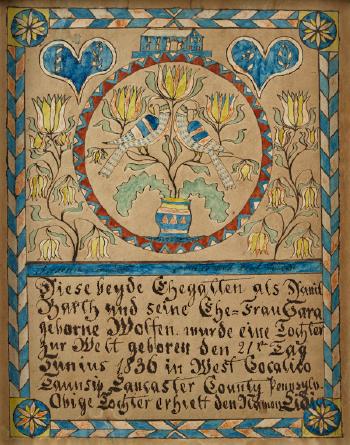 Diese beyde Ehegatten als
und seine Ehe-Frau Sara
geborne Wolfen. wurde eine Tochter
zur Welt geboren den 21te Tag
Junius 1830 in West Cocalico
Taunsip Lancaster County Pensylv.
Obige Tochter erhielt den Namen